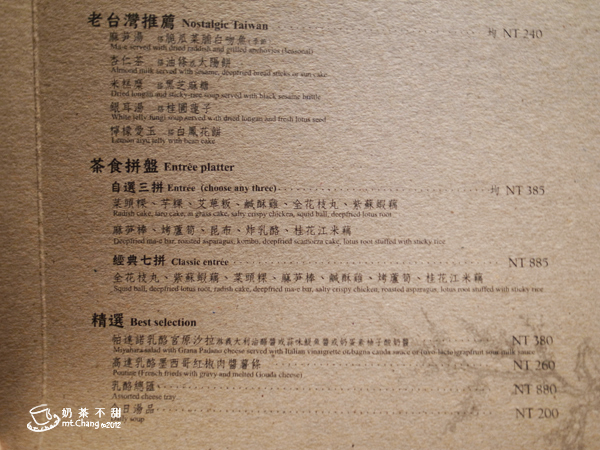 老台灣推薦 Nostalgic Taiwan
麻笋湯 搭脆瓜菜脯白吻魚(季節) 均 NT 240
Ma-e served with dried raddish and grilled anchovies (seasonal)
杏仁茶 搭油條或太陽餅
Almond milk served with sesame, deepfried bread sticks or sun cake
米糕糜 搭黑芝麻糖
Dried longan and sticky-rice soup served with black sesame brittle
銀耳湯 搭桂圓蓮子
White jelly fungi soup served with dried longan and fresh lotus seed
檸檬愛玉 搭白鳳花餅
Lemon aiyu jelly with bean cake
茶食拼盤 Entrèe platter
自選三拼 Entrèe (choose any three) 均 NT 385
菜頭粿、芋粿、艾草粄、鹹酥雞、全花枝丸、紫蘇蝦藕
Radish cake, taro cake, ai grass cake, salty crispy chicken, squid ball, deepfried lotus root
麻笋棒、烤蘆筍、昆布、炸乳酪、桂花江米藕
Deepfried ma-e bar, roasted asparagus, kombo, deepfried scamorza cake, lotus root stuffed with sticky rice
經典七拼 Classic entrèe NT 885
全花枝丸、紫蘇蝦藕、菜頭粿、麻笋棒、鹹酥雞、烤蘆筍、桂花江米藕
Squid ball, deepfried lotus root, radish cake, deepfried ma-e bar, salty crispy chicken, roasted asparagus, lotus root stuffed with sticky rice
精選 Best selection
帕達諾乳酪宮原沙拉 NT 380
Miyahara salad with Grana Padano cheese served with Italian vinaigrette or bagna cauda sauce or
高達乳酪墨西哥紅椒肉醬薯條 NT 260
Poutine (French fries with gravy and melted Gouda cheese)
乳酪總匯 NT 880
Assorted cheese tray
日湯品 NT 200
soup
奶茶不甜
mt.Chang @2012